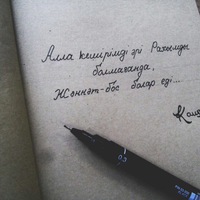 Алла кешірімді әрі Рахымды
болмағанда,
Жәннәт-бос болар еді...
0.3